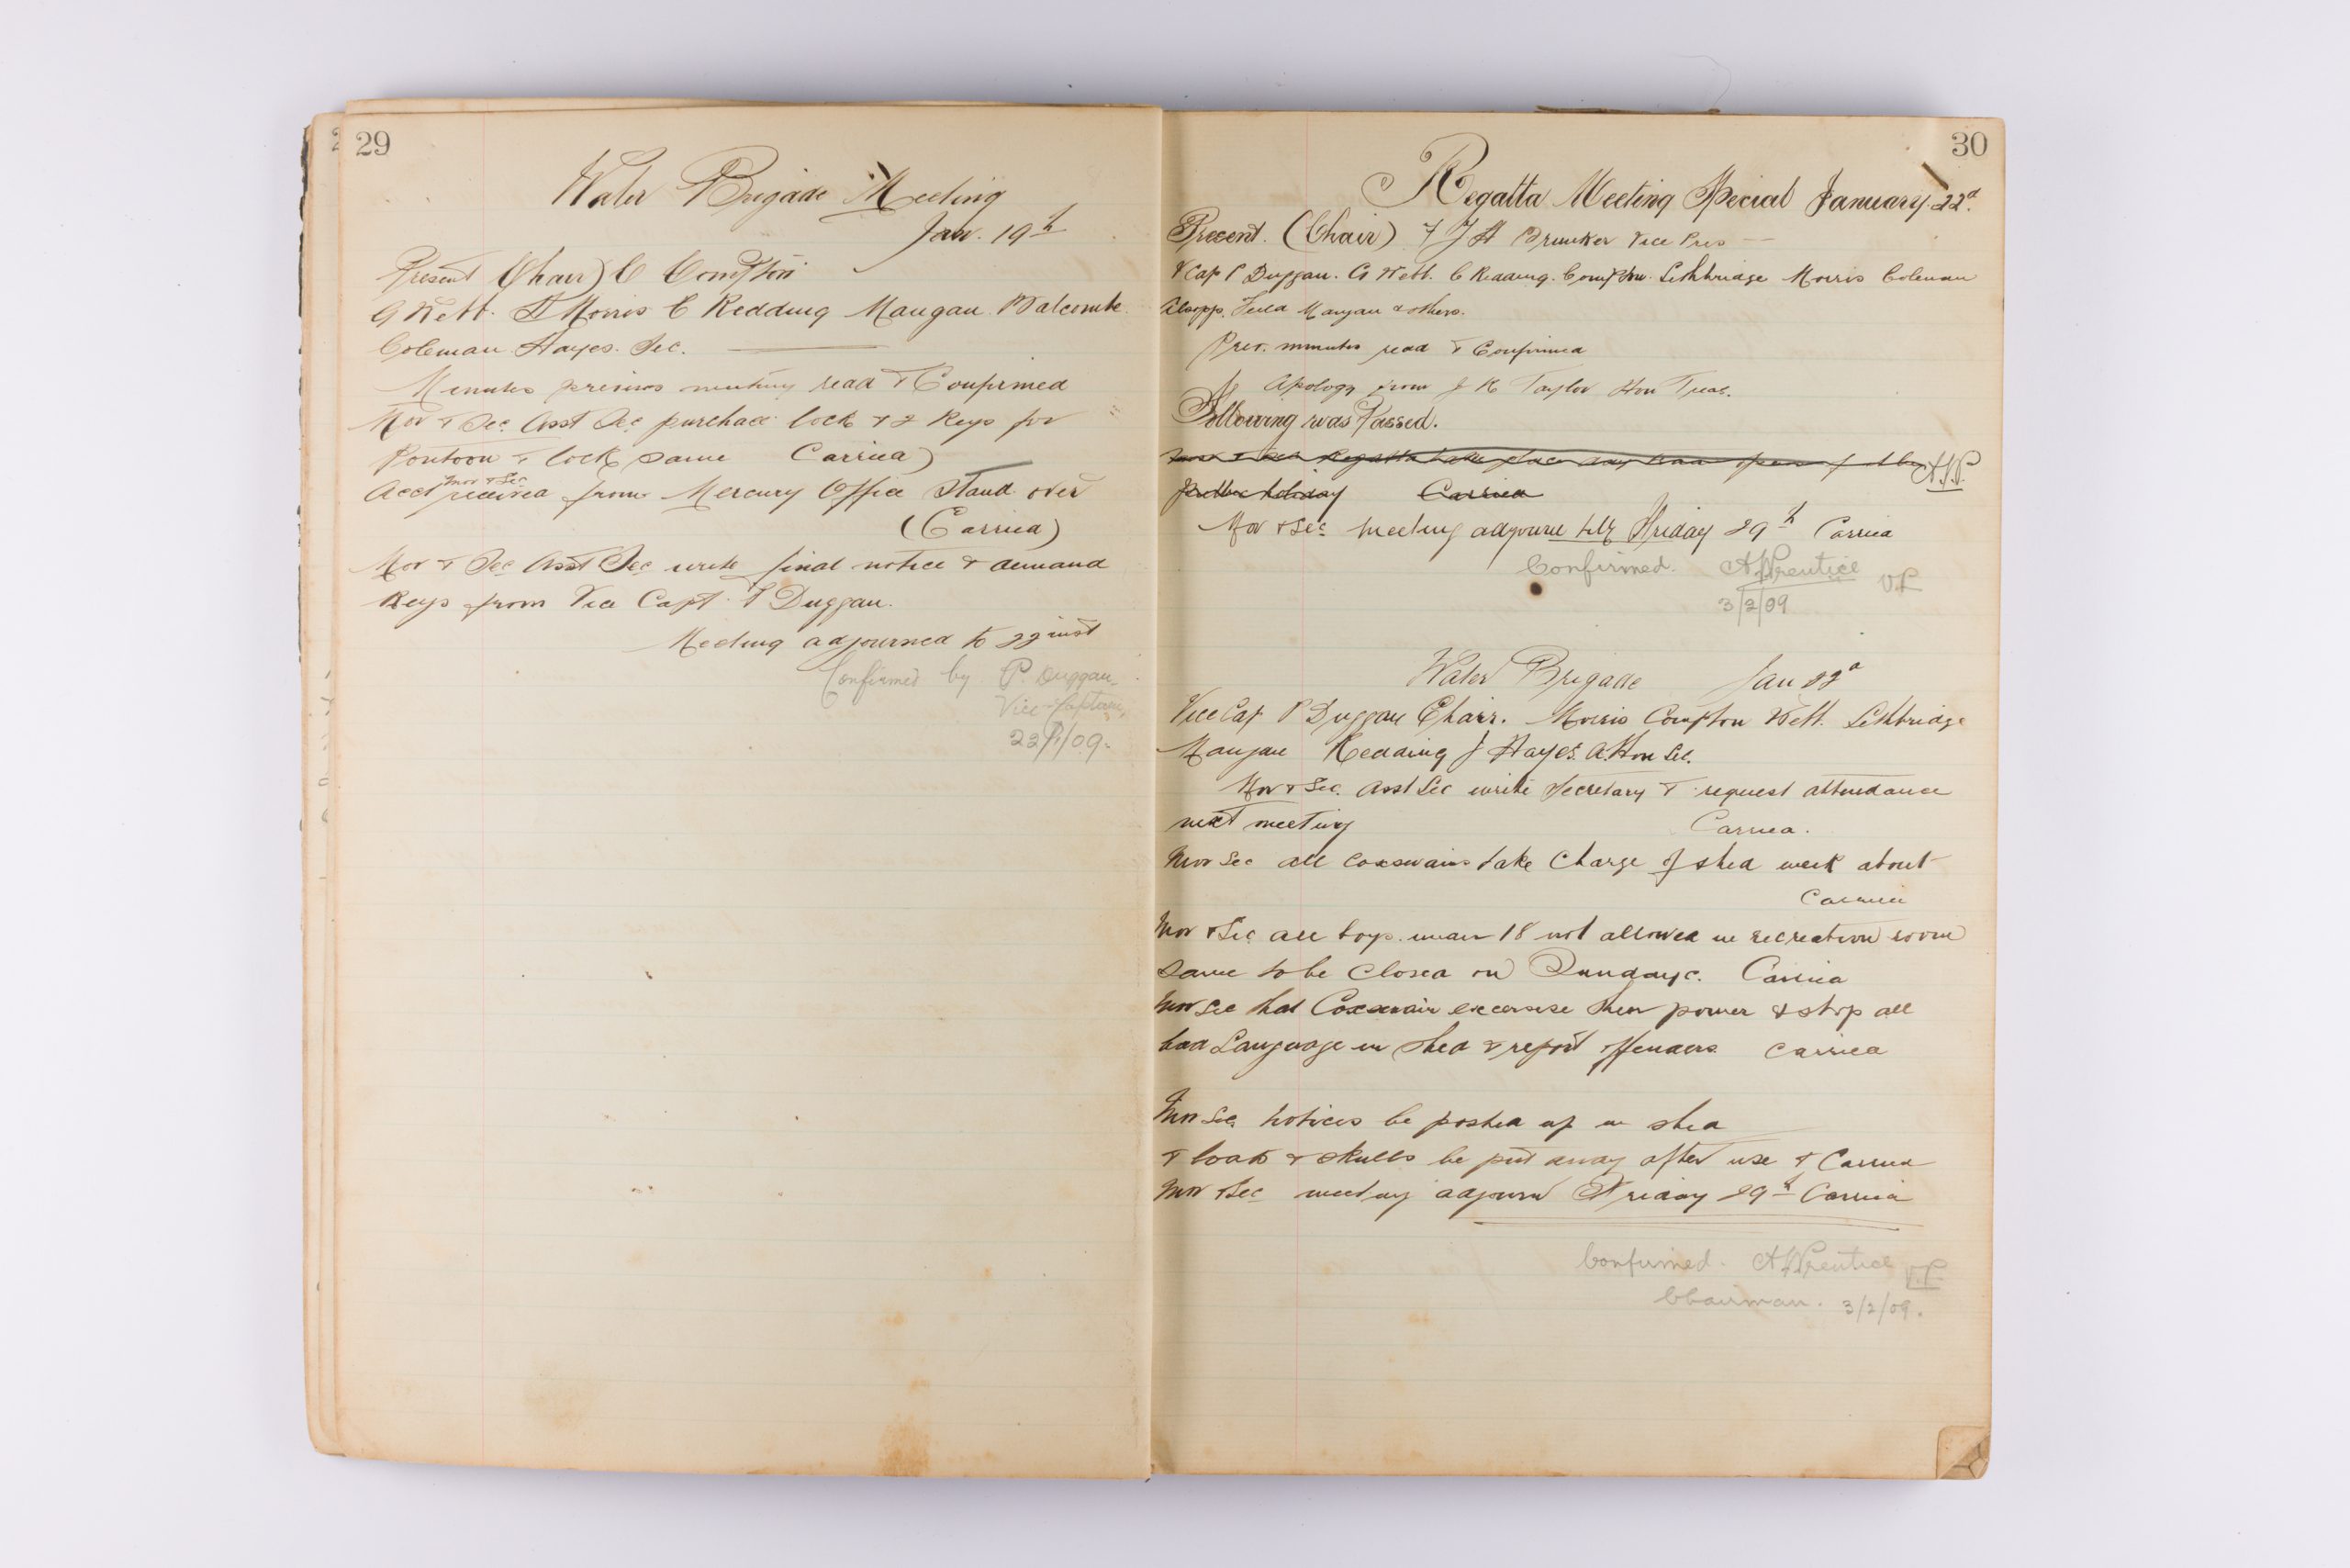 29
Water Brigade Meeting
Jan. 19th
Present (Chair) C Compton
G Nett. Morris C Redding Mangan Balcombe
Coleman Hayes. Sec.
Minutes previous meeting read & Confirmed
Mov & Sec. Asst Sec purchase lock & 2 Keys for
Pontoon & lock same Carried)
mov & Sec
Acct received from Mercury Office Stand over
(Carried)
Mov & Sec Asst Sec write final notice & demand
Keys from Vice Capt. P Duggan.
Meeting adjourned to 22 inst
Confirmed by P. Duggan,
Vice-Captain,
22/1/09.
30
Regatta Meeting Special January 22d.
Present. (Chair) Vice Pres
V Cap P Duggan. G Nett. C Redding. Compton. Lethbridge Morris Coleman
Allsopp. Feild Mangan & others.
Prev. minutes read & Confirmed
Apology from J K Taylor Hon Treas.
Following was Passed.
Mov & Sec Regatta take place
public holiday Carried
Mov & Sec meeting adjourn till Friday 29th Carried
Confirmed. A Prentice V.P.
3/2/09
Water Brigade Jan 22d
Vice Cap P Duggan Chair. Morris Compton Nett. Lethbridge
Mangan Redding J Hayes. A. Hon Sec.
Mov & Sec. Asst Sec write Secretary & request attendance
next meeting Carried.
Mov Sec all coxswains take Charge of shed week about
Carried
Mov & Sec all boys under 18 not allowed in recreation room
same to be Closed on Sundays. Carried
Mov Sec that Coxswain excersise their power & stop all
bad Language in shed & report offenders Carried
Mov Sec. notices be posted up in shed
& boats & skulls be put away after use & Carried
Mov & Sec meeting adjourn Friday 29th Carried
Confirmed. A Prentice V.P.
Chairman. 3/2/09.